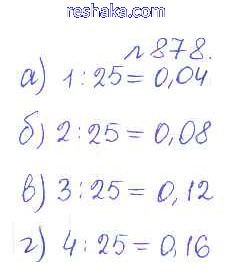 reshaka.com
№878.
а) 1 : 25 = 0,04
б) 2 : 25 = 0,08
в) 3 : 25 = 0,12
г) 4 : 25 = 0,16